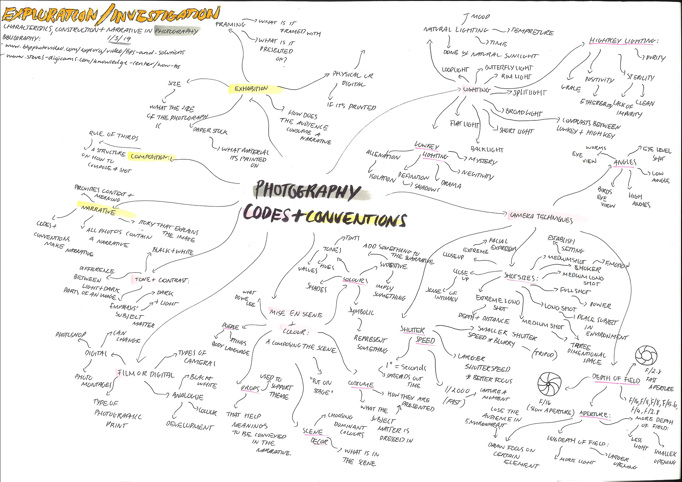 EXPLORATION/INVESTIGATION
CHARACTERISTICS, CONSTRUCTION + NARRATIVE IN PHOTOGRAPHY
1/3/19
FRAMING
WHAT IS IT
FRAMED WITH
WHAT IS IT
PRESENTED
ON?
EXHIBITION
PHYSICAL OR
DIGITAL
IF IT'S PRINTED
SIZE
WHAT THE SIZE
OF THE PHOTOGRAPH
IS
PAPER STOCK
WHAT MATERIAL
IT'S PRINTED ON
HOW DOES
THE AUDIENCE
CONSUME A
NARRATIVE
RULE OF THIRDS
COMPOSITION
A STRUCTURE
ON HOW TO
COMPOSE A SHOT
PROVIDES CONTEXT +
MEANING
NARRATIVE
STORY THAT EXPLAINS
THE IMAGE
ALL PHOTOS CONTAIN
A NARRATIVE
CODES +
CONVENTIONS
MAKE NARRATIVE
BLACK + WHITE
TONE + CONTRAST
DIFFERENCE
BETWEEN
LIGHT + DARK
PARTS OF AN IMAGE
DARK
+ LIGHT
EMPHASIS
SUBJECT
MATTER
PHOTOSHOP
CAN
CHANGE
DIGITAL
PHOTO
MONTAGES
FILM OR DIGITAL
TYPES OF
CAMERAS
BLACK +
WHITE
ANALOGUE
COLOUR
DEVELOPMENT
TYPE OF
PHOTOGRAPHIC
PRINT
PHOTOGRAPHY
CODES + CONVENTIONS
MOOD
NATURAL LIGHTING
TEMPERATURE
TIME
DONE BY NATURAL SUNLIGHT
LOOPLIGHT
BUTTERFLY LIGHT
RIM LIGHT
LIGHTING
SPLITLIGHT
BROADLIGHT
SHORT LIGHT
FLATLIGHT
BACKLIGHT
HIGHKEY LIGHTING:
PURITY
POSITIVITY
STERILITY
GRACE
ETHEREAL
LACK OF
IMPURITY
CLEAN
CONTRASTS BETWEEN
LOWKEY + HIGHKEY
LOWKEY
LIGHTING
ALIENATION
MYSTERY
NEGTIVITY
DRAMA
ISOLATION
DEFINITION
SHADOWS
WORMS
EYE VIEW
EYE LEVEL
SHOT
ANGLES
LOW
ANGLE
HIGH
ANGLES
BIRDS
EYE
VIEW
CAMERA TECHNIQUES
FACIAL
EXPRESSION
EXTREME
CLOSEUP
CLOSE
UP
SENSE OF
INTIMACY
ESTABLISH
SETTING
MEDIUM SHOT
EMOTION
MEDIUM LONG
SHOT
SHOT SIZES:
FULL SHOT
POWER
LONG SHOT
PLACE SUBJECT
IN
ENVIRONMENT
EXTREME LONG
SHOT
DEPTH + DISTANCE
MEDIUM SHOT
THREE
DIMENSIONAL
SPACE
SHUTTER
SPEED
SMALLER SHUTTER
SPEED = BLURRY
(TRIPOD)
LARGER
SHUTTERSPEED
= BETTER FOCUS
CAPTURE A
MOMENT
1/2000
(FAST)
1" = SECONDS
SPREADS OUT
TIME
DEPTH OF FIELD
F/2.8
FAST
APERTURE
F/16
(SLOW APERTURE)
APERTURE:
MORE DEPTH
OF FIELD
LESS
LIGHT
SMALLER
OPENING
LESS DEPTH OF FIELD:
MORE LIGHT
LARGER
OPENING
LOSE THE
AUDIENCE IN
ENVIRONMENT
DRAW FOCUS ON
CERTAIN
ELEMENT
TINTS
TONES
VALUES
HUES
SHADES
COLOURS
ADD SOMETHING TO
THE NARRATIVE
SUBJECTIVE
IMPLY SOMETHING
SYMBOLIC
REPRESENT
SOMETHING
MISE EN SCENE
+
COLOUR:
WHAT
DO WE
SEE
A COMPOSING THE SCENE
PEOPLE
BODY LANGUAGE
PROPS
USED TO
SUPPORT
THEME
THAT HELP
MEANINGS
TO BE CONVEYED
IN THE
NARRATIVE.
"PUT ON
STAGE"
SCENE
DECOR
CHOOSING
DOMINANT
COLOURS
WHAT IS IN
THE SCENE
COSTUME
HOW THEY ARE
PRESENTED
WHAT THE
SUBJECT
MATTER IS
DRESSED IN